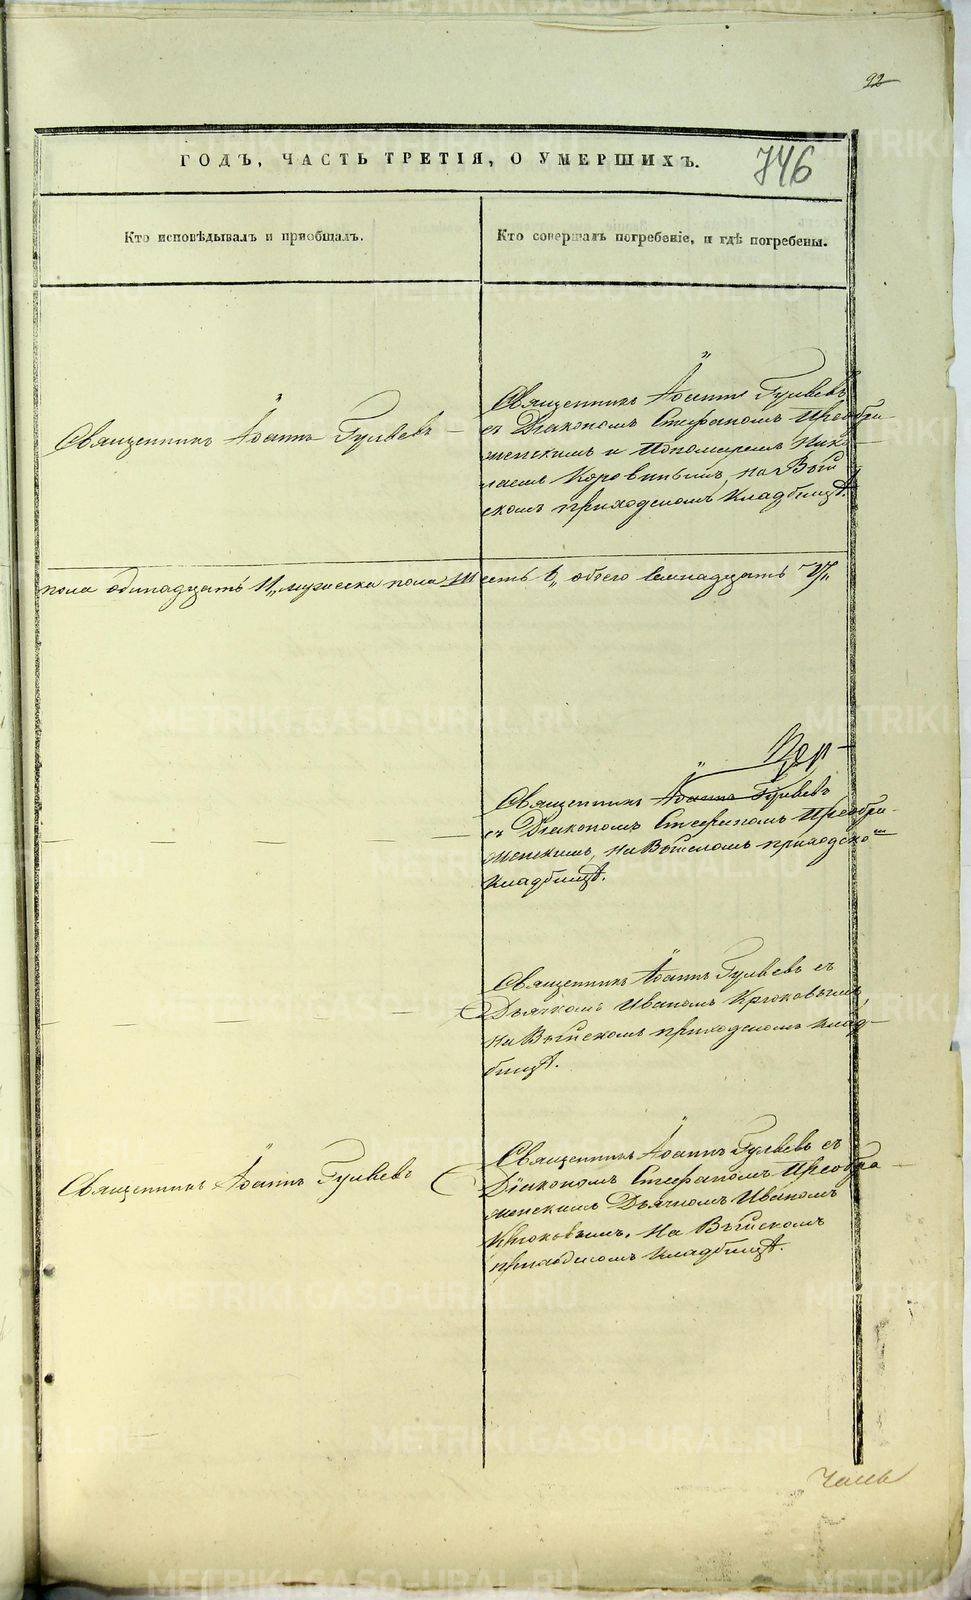 92
ГОДЪ, ЧАСТЬ ТРЕТІЯ, О УМЕРШИХЪ.
746
Кто исповѣдывалъ и приобщалъ.
Кто совершалъ погребеніе, и гдѣ погребены.
Священникъ Іоаннъ Гуляевъ
Священникъ Іоаннъ Гуляевъ
съ Діакономъ Стефаномъ Преобра-
женскимъ и Пономаремъ Нико-
лаемъ Коровинымъ, на Вый
скомъ приходскомъ кладбищѣ.
пола одинадцать 11, женска пола шесть 6, обоего семнадцать 17,
Священникъ Іоаннъ Гуляевъ
съ Діакономъ Стефаномъ Преобра-
женскимъ, на Выйскомъ приходско
кладбищѣ.
Священникъ Іоаннъ Гуляевъ съ
Дьячкомъ Иваномъ Крюковымъ,
на Выйскомъ приходскомъ клад-
бищѣ.
Священникъ Іоаннъ Гуляевъ
Священникъ Іоаннъ Гуляевъ съ
Діакономъ Стефаномъ Преобра
женскимъ Дьячкомъ Иваномъ
Крюковымъ, на Выйскомъ
приходскомъ кладбищѣ.
METRIKI.GASO-URAL.RU